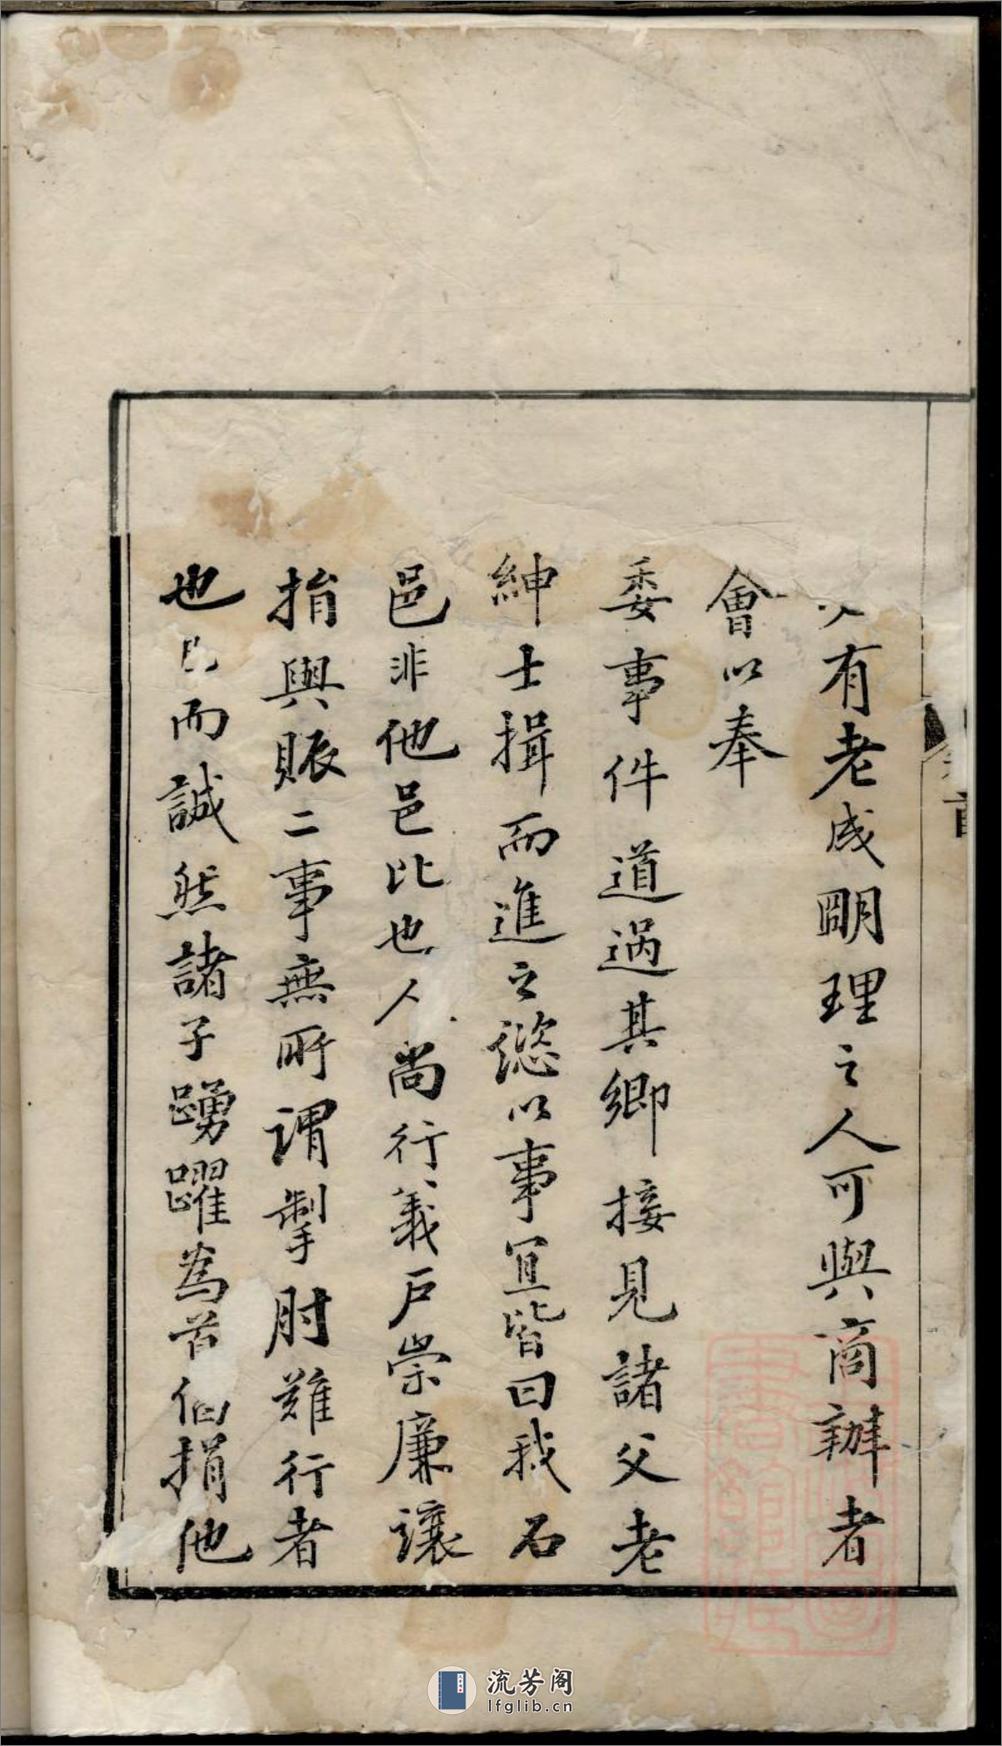 有老成明理之人可與商辦者
會以奉
委事件道過其鄉接見諸父老
紳士揖而進之諮以事宜皆曰我石
邑非他邑比也人尚行義戶崇廉讓
捐與賑二事無所謂掣肘難行者
也而誠然諸子踴躍為首倡捐他
首
流芳阁
lfglib.cn